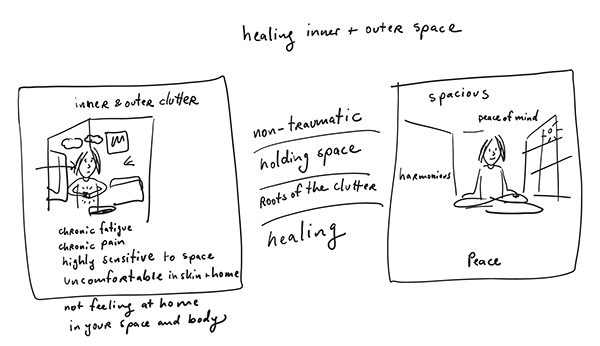 healing inner + outer space
inner & outer clutter
chronic fatigue
chronic pain
highly sensitive to space
uncomfortable in skin + home
not feeling at home
in your space and body
non-traumatic
holding space
Roots of the clutter
healing
spacious
peace of mind
harmonious
Peace